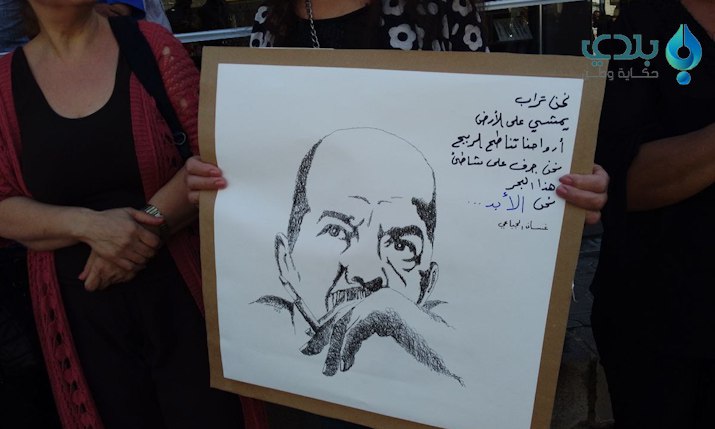 بلدي
حكاية وطن
نحن تراب
يمشي على الأرض
أرواحنا تناطح الريح
نحن حرف على شاطئ
هذا البحر
نحن الأبد ....
غسان الجباعي